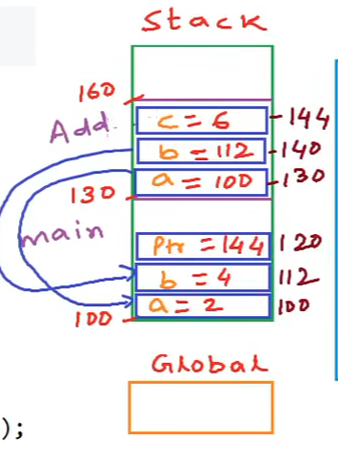 Stack
160
Add
c = 6 -144
b = 112 -140
a = 100 -130
130
main
Ptr = 144 120
b = 4 112
a = 2 100
100
Global
);